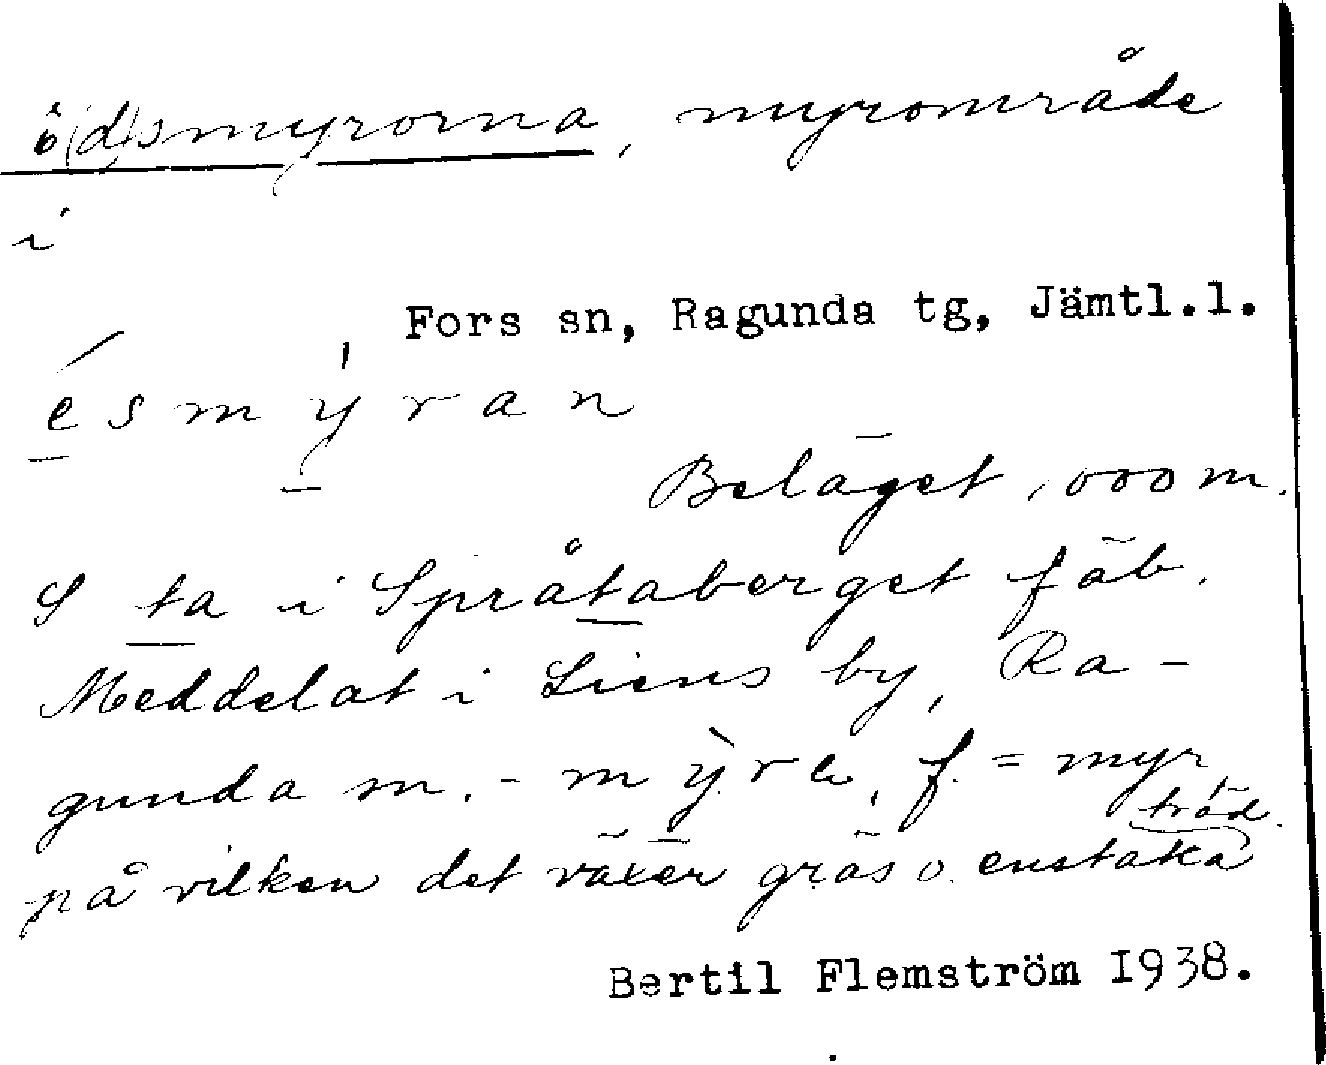 ö(d)smyrorna, myrområde
i
Fors sn, Ragunda tg, Jämtl.l.
é s m ý r a n
Beläget 1,000 m.
S ta i Språtaberget fäb.
Meddelat i Liens by, Ra-
gunda sn. - m ỳ r e, f. = myr,
på vilken det växer gräs o. enstaka träd.
Bertil Flemström 1938.